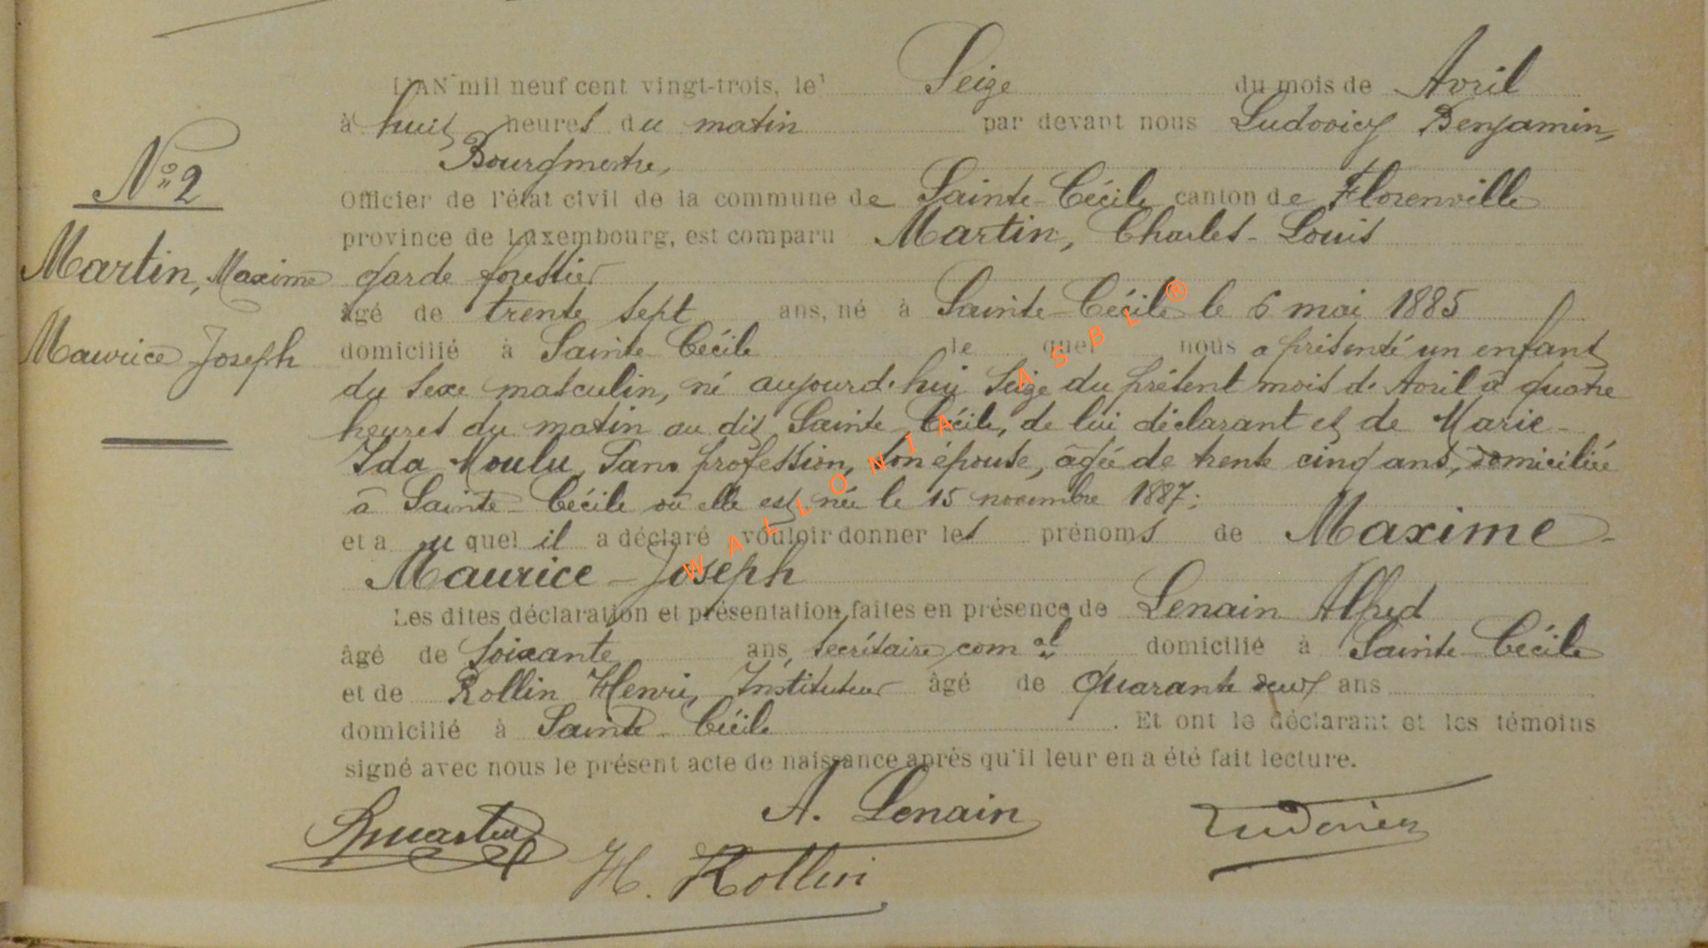 L'AN mil neuf cent vingt-trois, le Seize du mois de Avril
à huit heures du matin par devant nous Ludovicy Benjamin,
Bourgmestre,
N° 2
officier de l'état civil de la commune de Sainte-Cécile canton de Florenville
province de Luxembourg, est comparu Martin, Charles-Louis
Martin, Maxime
garde forestier
âgé de trente sept ans, né à Sainte-Cécile le 6 mai 1885
Maurice Joseph
domicilié à Sainte Cécile le quel nous a présenté un enfant
du sexe masculin, né aujourd'hui Seize du présent mois de Avril à quatre
heures du matin au dit Sainte Cécile, de lui déclarant et de Marie-
Ida Moulu, Sans profession, son épouse, âgée de trente cinq ans, domiciliée
à Sainte-Cécile où elle est née le 15 novembre 1887;
et a u quel il a déclaré vouloir donner les prénoms de Maxime-
Maurice-Joseph
Les dites déclaration et présentation faites en présence de Lenain Alfred
âgé de soixante ans, secrétaire comal domicilié à Sainte-Cécile
et de Rollin Henri, Instituteur âgé de quarante deux ans
domicilié à Sainte-Cécile. Et ont le déclarant et les témoins
signé avec nous le présent acte de naissance après qu'il leur en a été fait lecture.
A. Lenain
H. Rollin
WALLONIA ASBL®